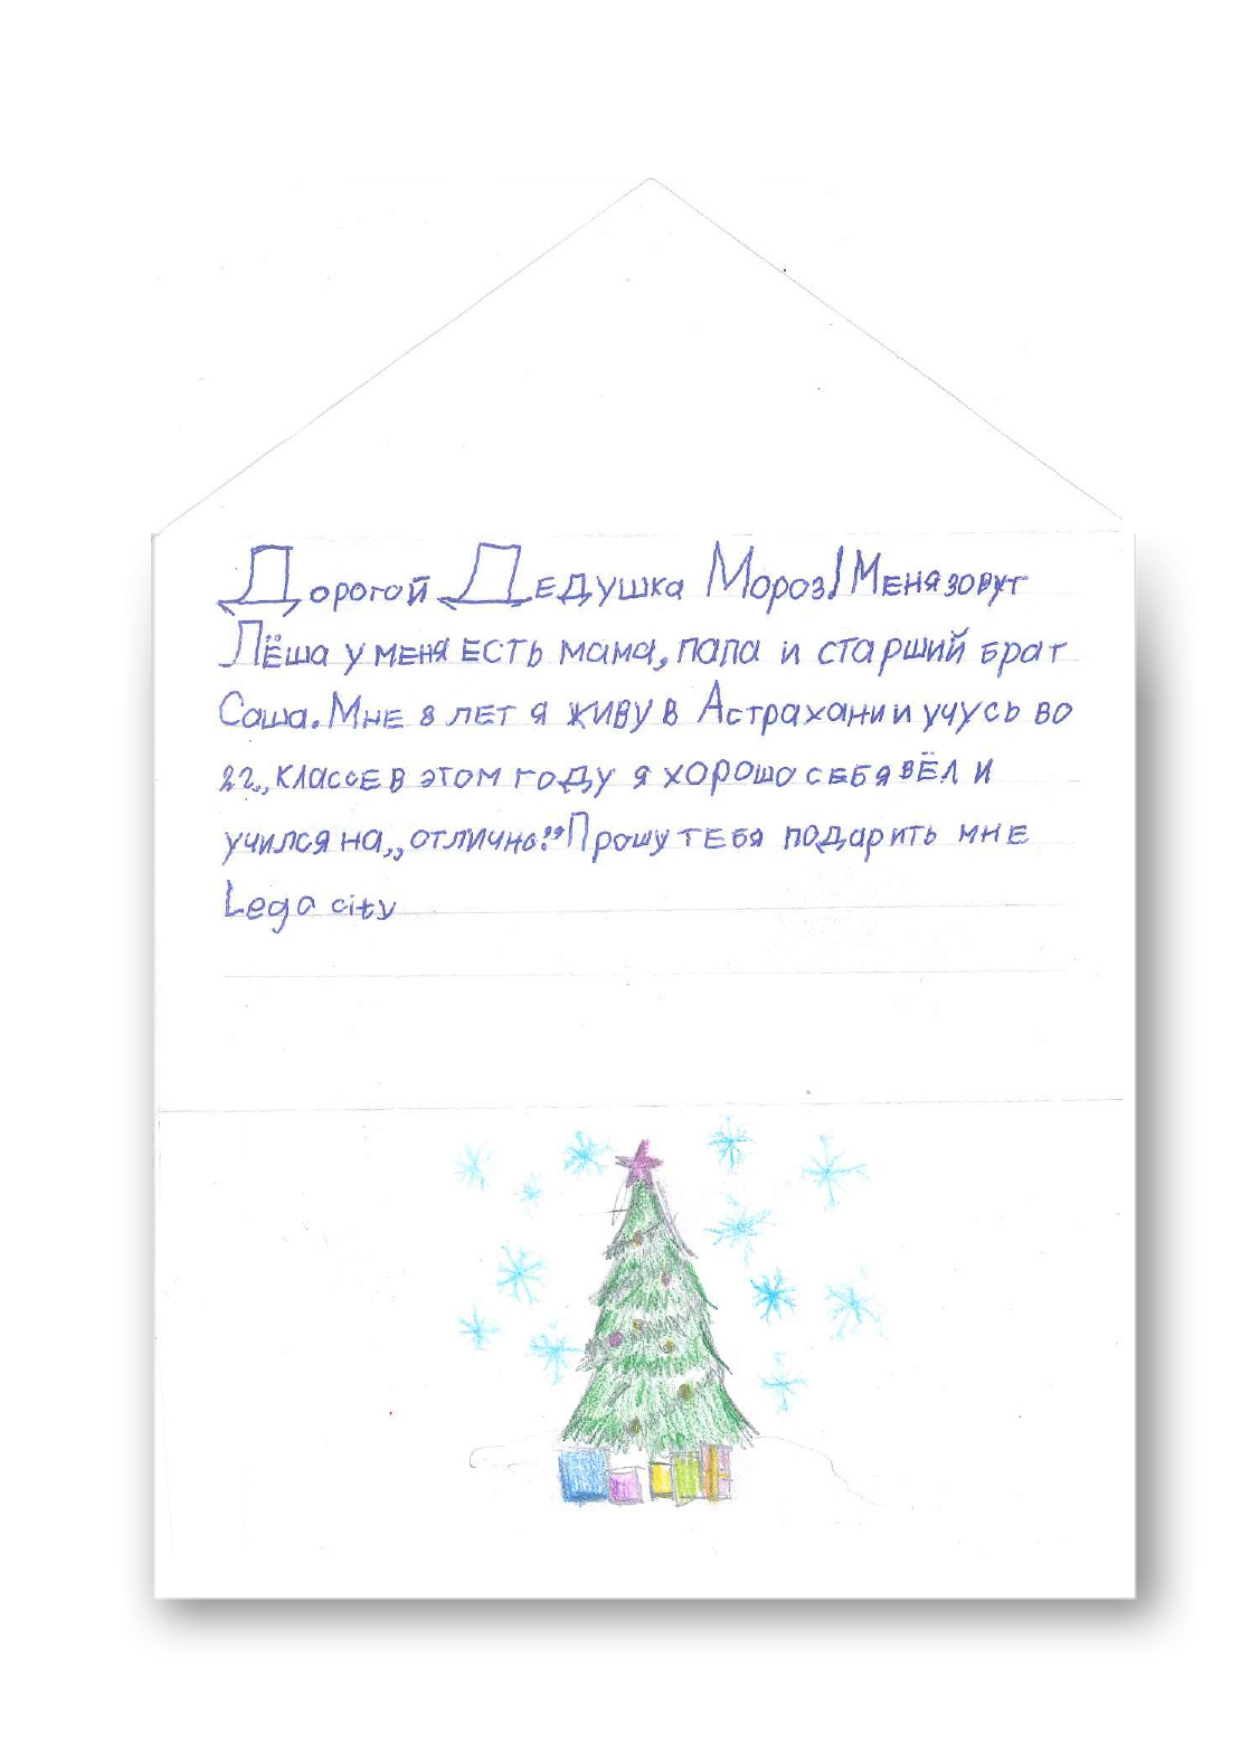 Дорогой Дедушка Мороз! Меня зовут
Лёша у меня есть мама, папа и старший брат
Саша. Мне 8 лет я живу в Астрахани и учусь во
2г,, классе в этом году я хорошо себя вёл и
учился на ,,отлично." Прошу тебя подарить мне
Lego city